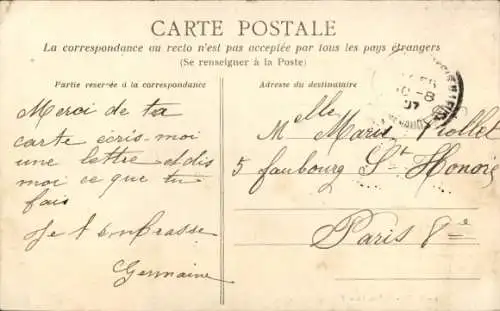 CARTE POSTALE
La correspondance au recto n'est pas acceptée par tous les pays étrangers
(Se renseigner à la Poste)
Partie reservée à la correspondance
Merci de ta
carte écris-moi
une lettre et dis
moi ce que tu
fais
Je t'embrasse
Germaine
Adresse du destinataire
Melle Marie
5 faubourg St Honoré
Paris 8e